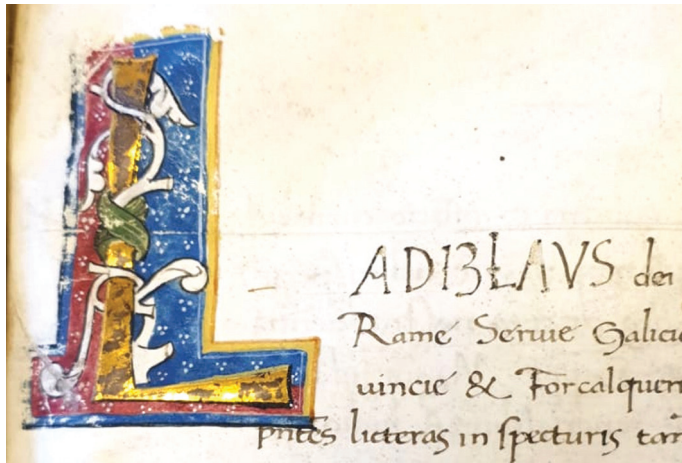 LADIZLAVS dei
Rame Seruie Galicie
uincie & Forcalquer
pntes licteras in specturis tam